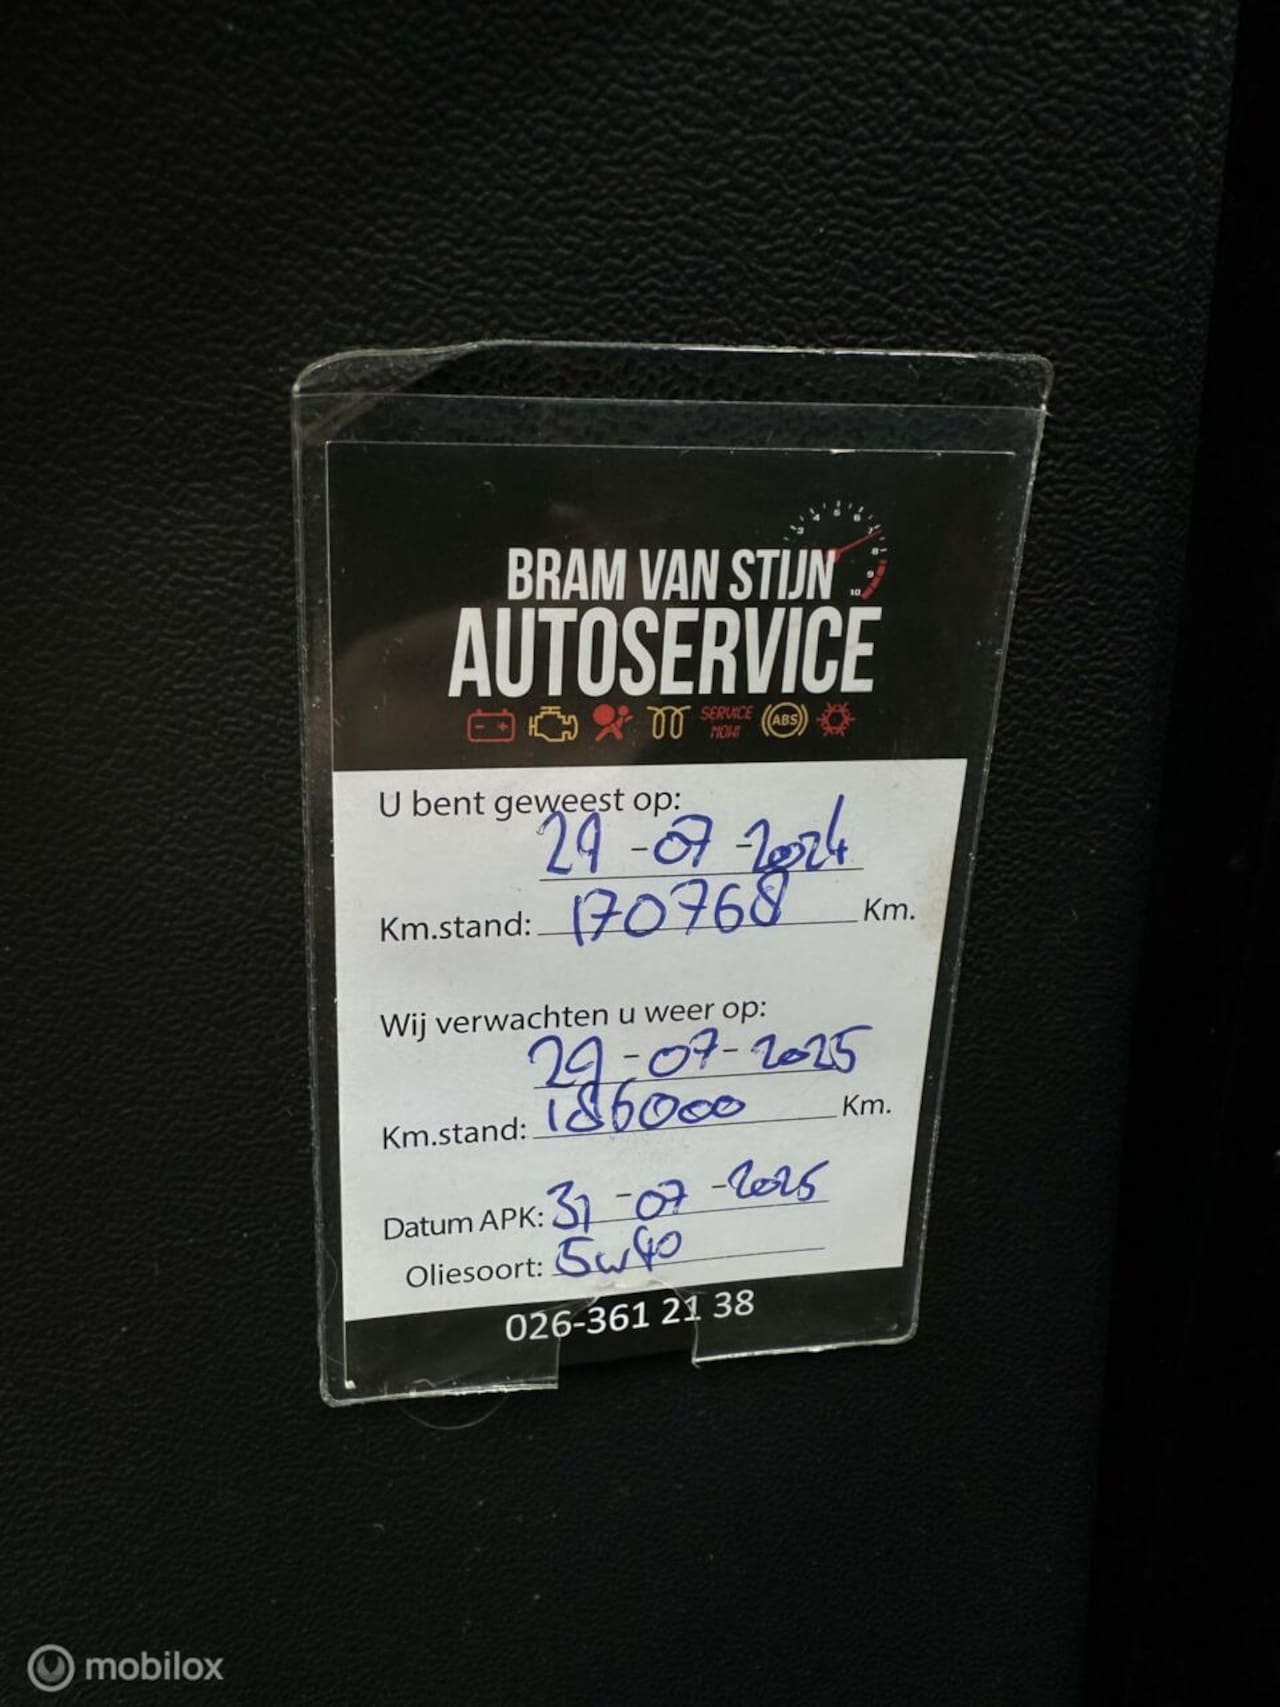 3 4 5 6 7 8 9 10
BRAM VAN STIJN
AUTOSERVICE
SERVICE NOW! ABS
U bent geweest op:
29-07-2024
Km.stand: 170768 Km.
Wij verwachten u weer op:
29-07-2025
Km.stand: 186000 Km.
Datum APK: 31-07-2025
Oliesoort: 5w40
026-361 21 38
mobilox